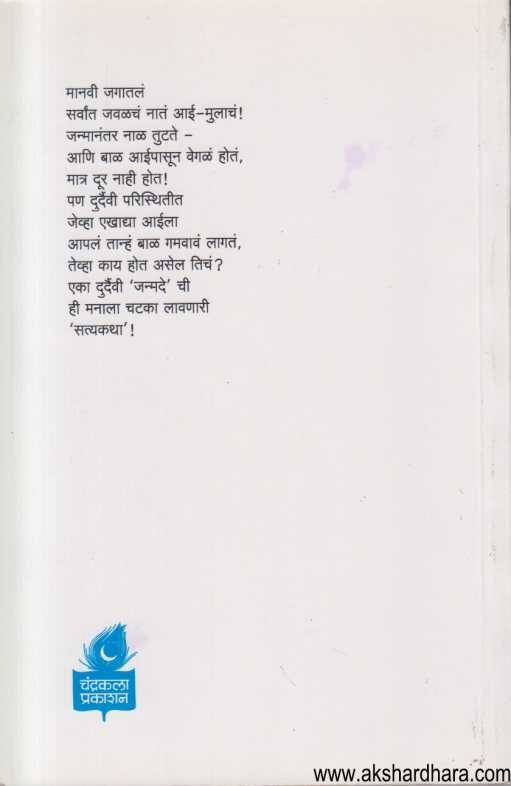 मानवी जगातलं
सर्वांत जवळचं नातं आई-मुलाचं!
जन्मानंतर नाळ तुटते -
आणि बाळ आईपासून वेगळं होतं,
मात्र दूर नाही होत!
पण दुर्दैवी परिस्थितीत
जेव्हा एखाद्या आईला
आपलं तान्हं बाळ गमवावं लागतं,
तेव्हा काय होत असेल तिचं?
एका दुर्दैवी 'जन्मदे' ची
ही मनाला चटका लावणारी
'सत्यकथा'!
चंद्रकला
प्रकाशन
www.akshardhara.com